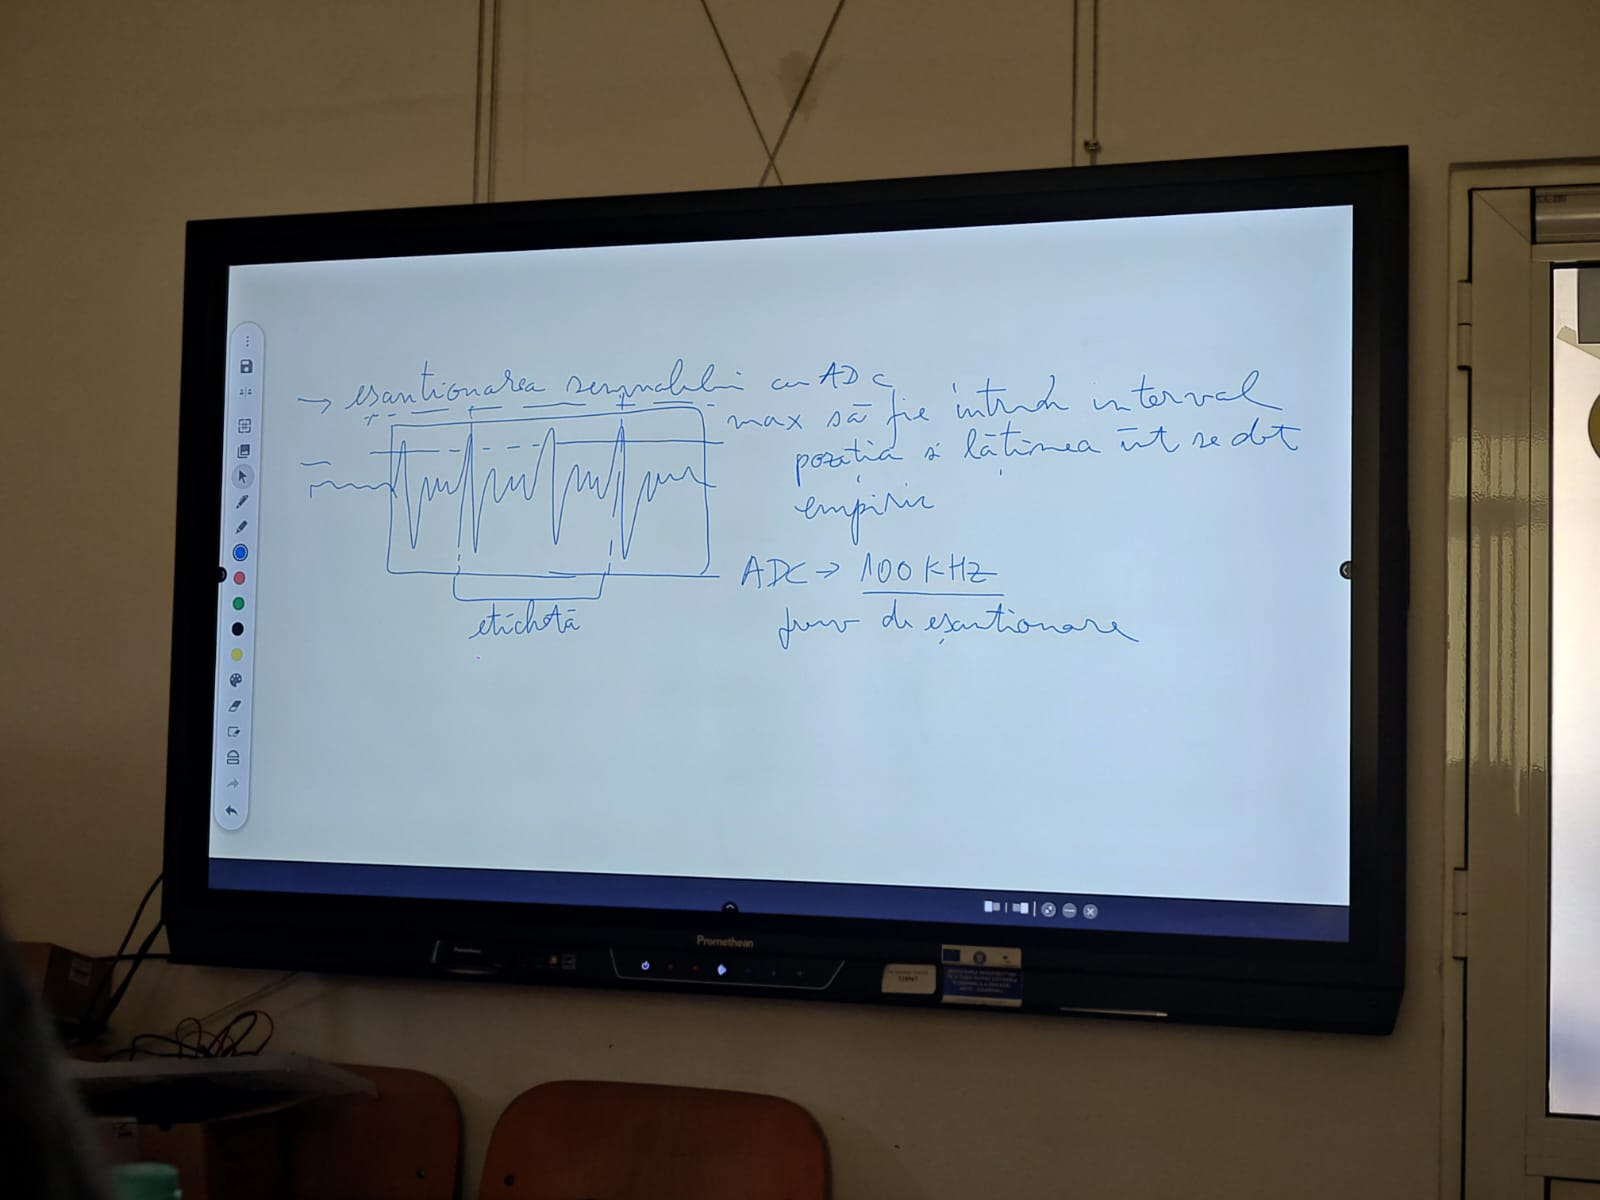 → eșantionarea semnalului cu ADC
max să fie într un interval
poziția și lățimea int se det
empiric
ADC → 100 KHz
frecv de eșantionare
etichetă
Promethean